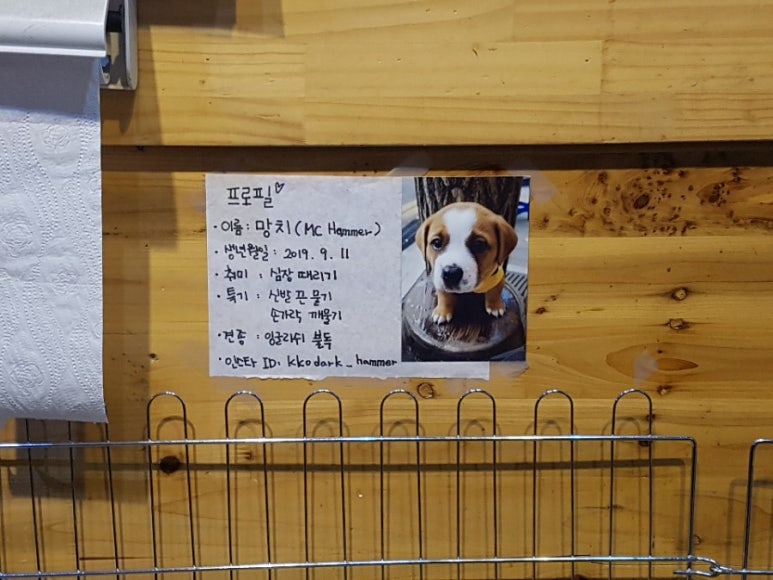 프로필♡
· 이름 : 망치 (MC Hammer)
· 생년월일 : 2019. 9. 11
· 취미 : 심장 때리기
· 특기 : 신발 끈 물기
손가락 깨물기
· 견종 : 잉글리쉬 불독
· 인스타 ID : kkodark_hammer